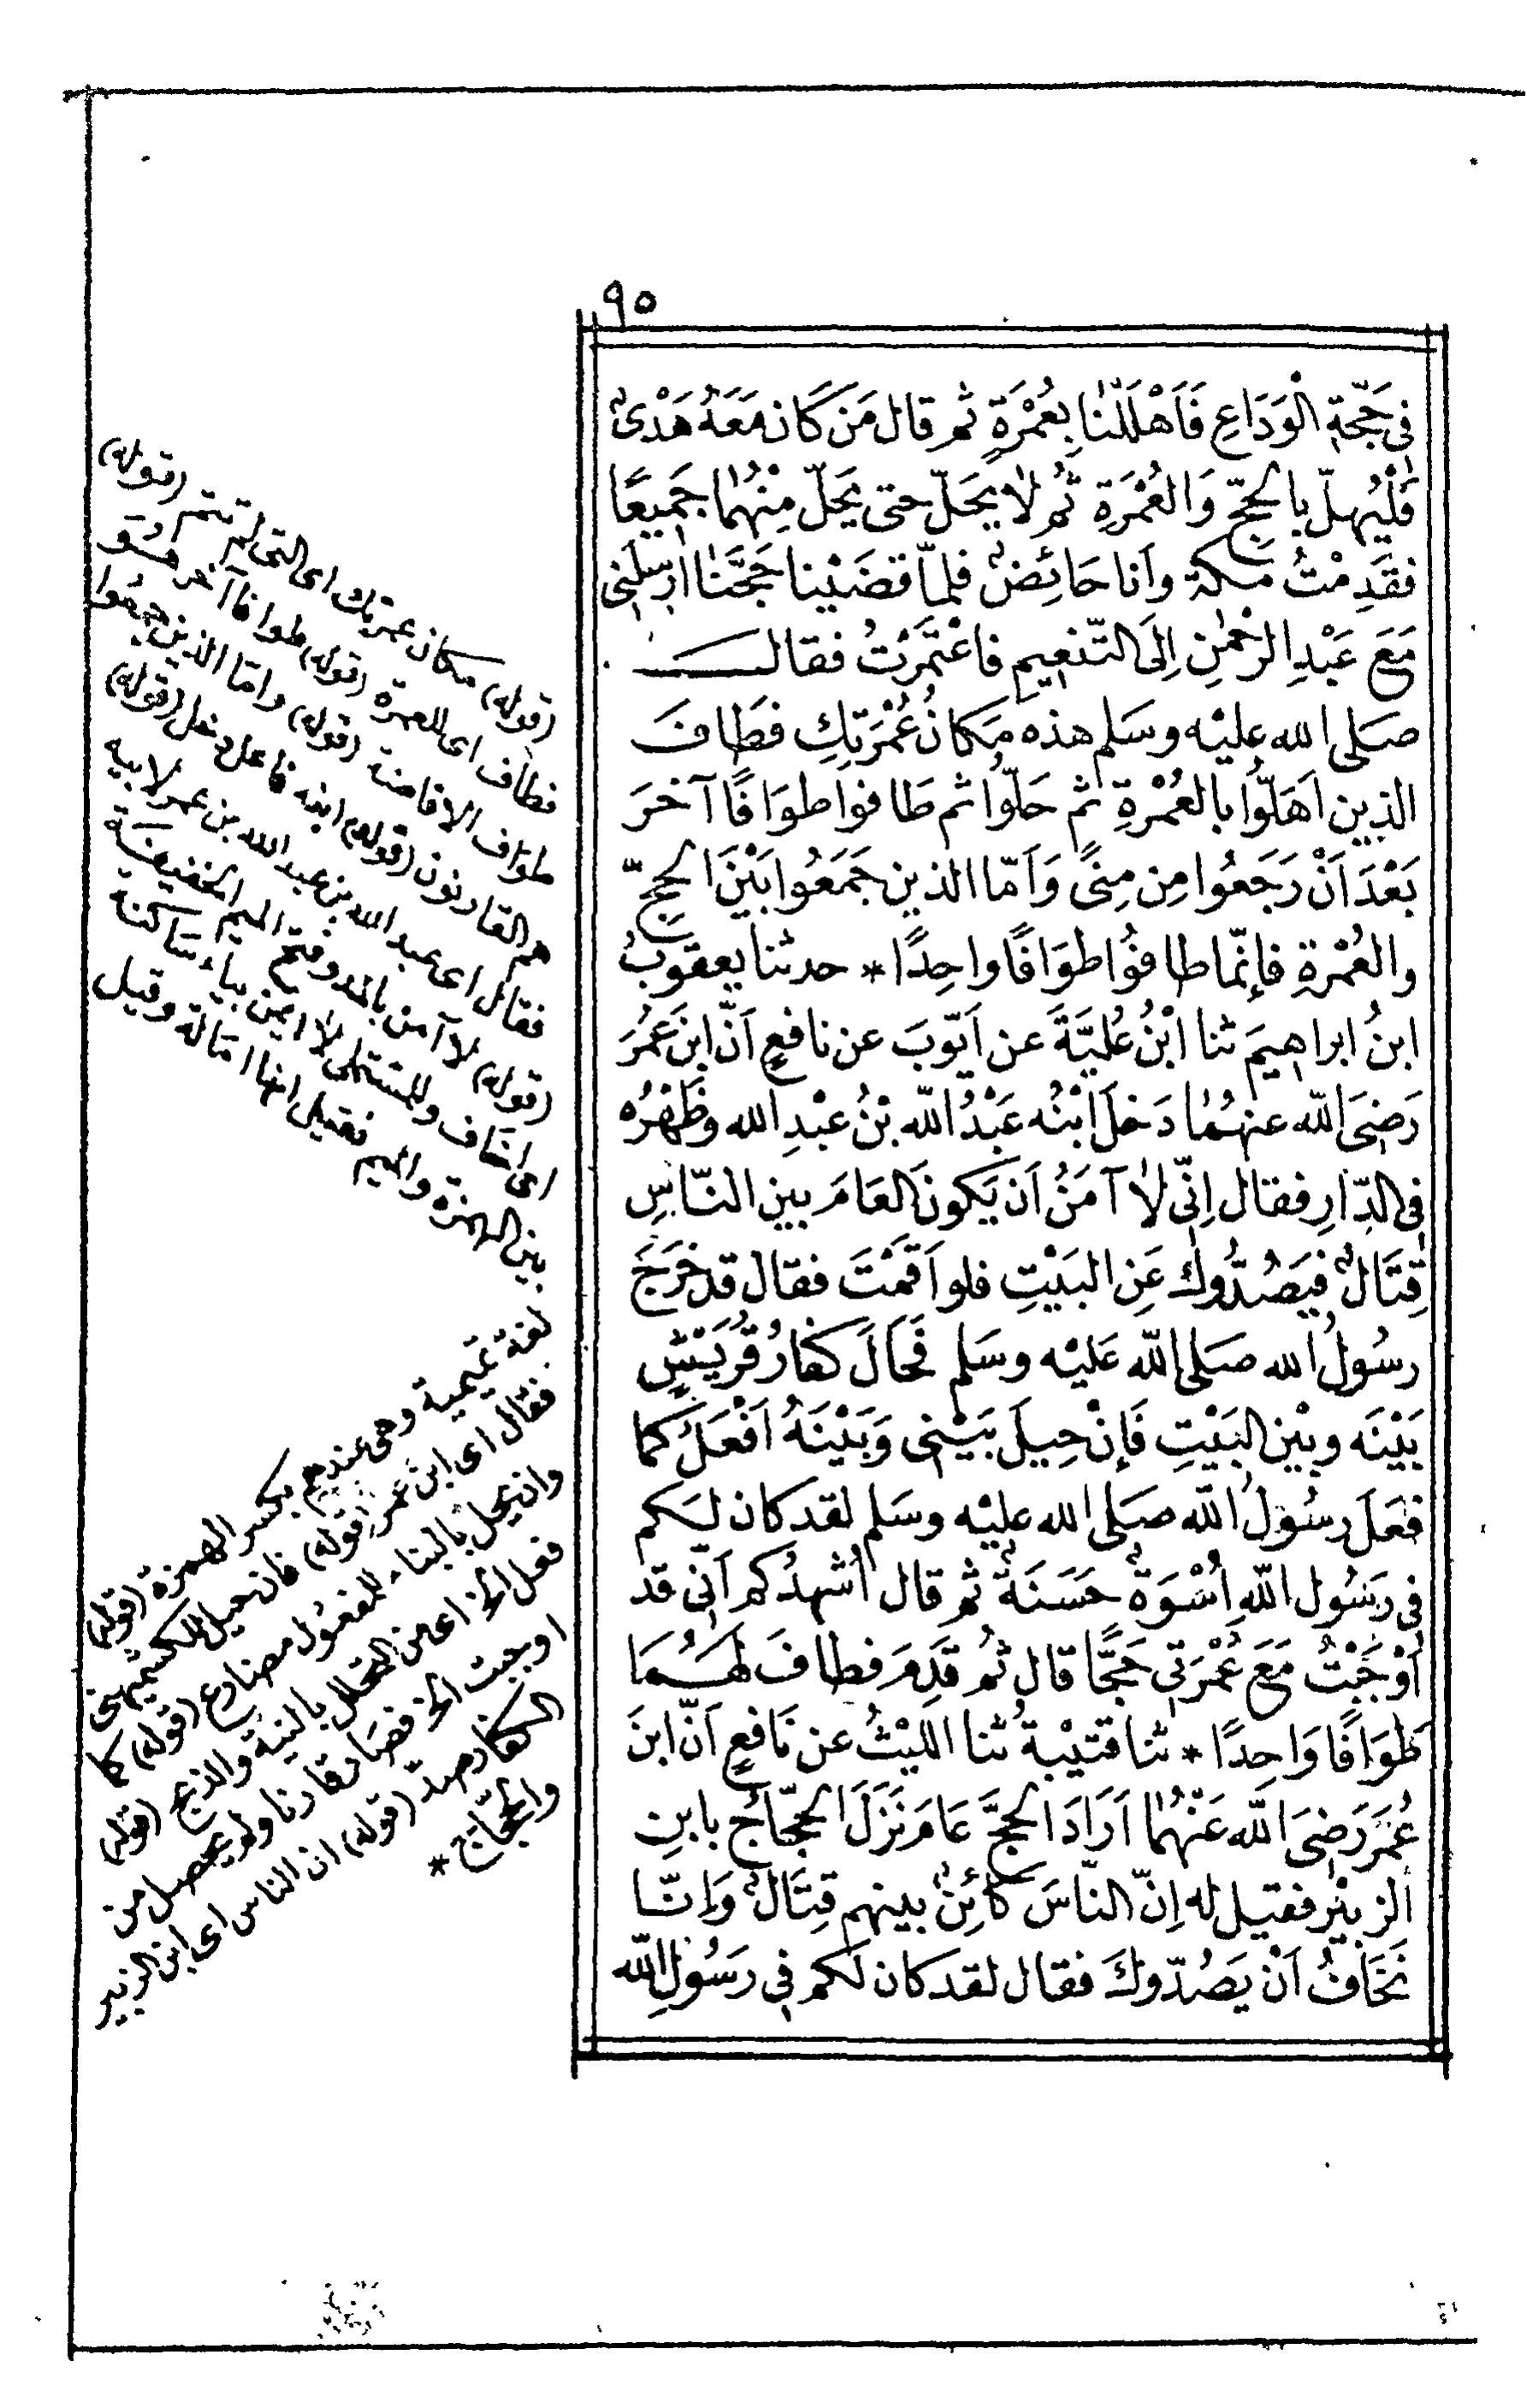 ٩٥
فى حَجَّةِ الْوَدَاعِ فَأَهْلَلْنَا بِعُمْرَةٍ ثم قال مَن كَانَ مَعَهُ هَدْىٌ
فَلْيُهِلّ بالحَجِّ وَالعُمْرَةِ ثُم لا يَحِلّ حتى يَحِلّ مِنْهُمَا جَمِيعًا
فقَدِمْتُ مكةَ وأنا حَائِضٌ فلمّا قضَيْنا حَجَّنَا ارْسَلَنِى
مَعَ عَبْدِ الرحْمنِ اِلَى التَّنْعِيمِ فاعْتَمَرْتُ فقال
صَلى الله عليْه وسَلم هذه مَكانُ عُمْرَتِكِ فطَافَ
الذين اَهَلّوا بالعُمْرَةِ ثم حَلّوا ثم طَافوا طوَافًا آخَرَ
بَعْدَ اَنْ رَجَعُوا مِن مِنًى وَاَمّا الذين جَمَعُوا بَيْنَ الحَجِّ
والعُمْرةِ فإنّما طافُوا طوَافًا واحِدًا * حدثنا يعقوبُ
ابنُ ابراهيمَ ثنا ابْنُ عُلَيَّةَ عن اَيّوبَ عن نافعٍ اَنّ ابنَ عمَرَ
رَضِىَ الله عنهُمَا دَخلَ ابْنُه عَبْدُ الله بْنُ عبْدِ الله وظَهْرُه
فى الدّارِ فقال اِنّى لا آمَنُ اَن يَكونَ العَامَ بين النّاسِ
قِتَالٌ فيَصُدُّوكَ عَنِ البَيْتِ فلو اَقمْتَ فقال قد خَرَجَ
رسُولُ الله صَلى الله عَليْه وسَلم فَحَالَ كفارُ قُرَيْشٍ
بَيْنَه وبيْن البَيْتِ فَإنْ حِيلَ بَيْنِى وَبَيْنَهُ اَفْعَلُ كما
فعَلَ رسُولُ الله صَلى الله عليْه وسَلم لقد كان لَكم
فى رَسُولِ اللهِ اُسْوَةٌ حَسَنَةٌ ثم قال اُشْهِدُكم اَنى قد
اَوْجَبْتُ مَعَ عُمْرَتى حَجًّا قال ثُم قَدِمَ فطافَ لَهُمَا
طَوَافًا وَاحِدًا * ثنا قتيْبةُ ثنا الليْثُ عن نَافعٍ اَنّ ابنَ
عُمَرَ رَضِىَ الله عَنْهُمَا اَرَادَ الحَجَّ عَامَ نَزَلَ الحَجّاجُ بابنِ
الزبيْر فقيل له اِنّ النّاسَ كَائِنٌ بينهم قِتَالٌ وَاِنّا
نَخَافُ اَنْ يَصُدّوكَ فقال لقد كان لَكم فى رَسُولِ الله
(قوله) مكان عمرتك اى التى لم تتم (قوله)
فطاف اى للعمرة (قوله) طوافا آخر هو
طواف الافاضة (قوله) واما الذين جمعوا
هم القارنون (قوله) ابنه فاعل دخل (قوله)
فقال اى عبد الله بن عبد الله بن عمر لابيه
(قوله) لا آمن بالمد وفتح الميم المخففة
اى اخاف وللمستملى لا ايمن بياء ساكنة
بين الهمزة والميم فقيل انها امالة وقيل
لغة تميمية وهى عندهم بكسر الهمزة (قوله)
فقال اى ابن عمر (قوله) فان حيل للكشميهنى
وان يحل بالبناء للمفعول مضارع (قوله) كما
فعل الخ اى من التحلل بالنية والذبح (قوله)
اوجبت الخ فصار قارنا ولم يحصل من
الكفار صدّ (قوله) ان الناس اى ابن الزبير
والحجّاج *